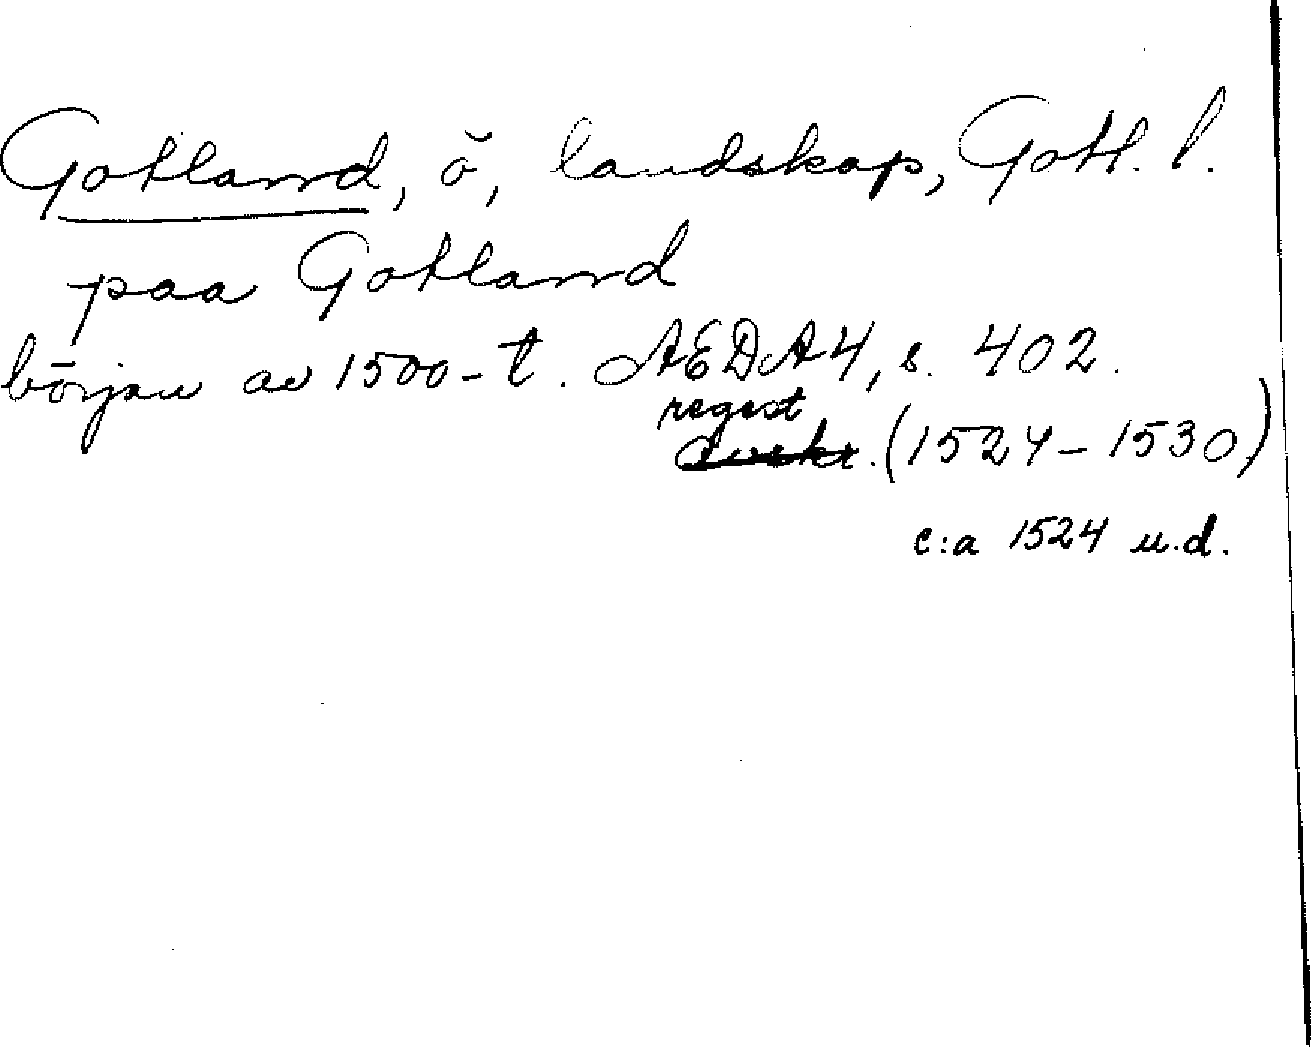 Gotland, ö, landskap, Gotl. l.
paa Gotland
början av 1500-t. AEDA4, s. 402.
regest
avskr. (1524-1530)
c:a 1524 u.d.